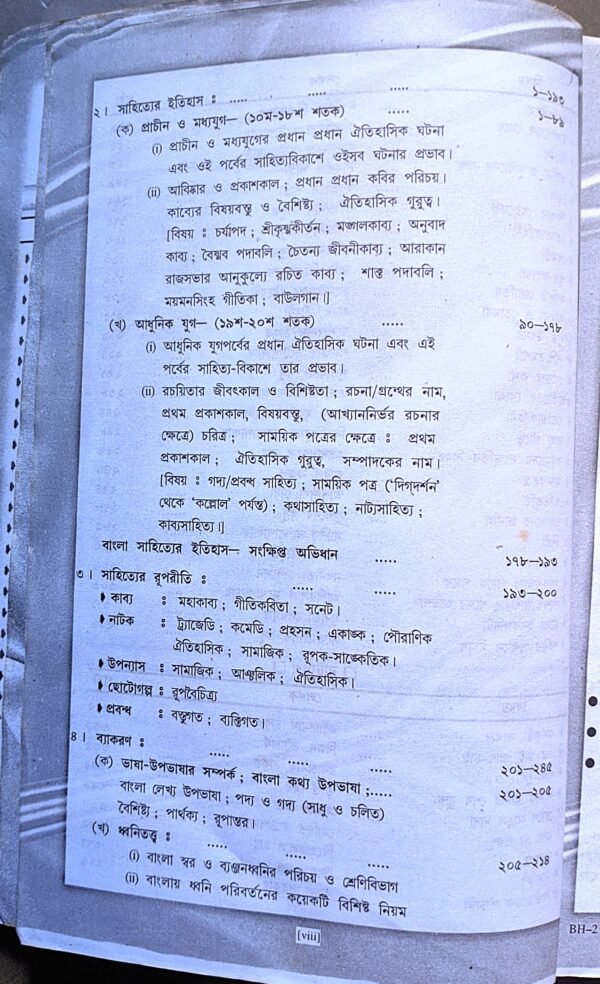 ২। সাহিত্যের ইতিহাস : ..... ..... ..... ১—১৯৩
(ক) প্রাচীন ও মধ্যযুগ— (১০ম-১৮শ শতক) ..... ১—৮৯
(i) প্রাচীন ও মধ্যযুগের প্রধান প্রধান ঐতিহাসিক ঘটনা
এবং ওই পর্বের সাহিত্যবিকাশে ওইসব ঘটনার প্রভাব।
(ii) আবিষ্কার ও প্রকাশকাল ; প্রধান প্রধান কবির পরিচয়।
কাব্যের বিষয়বস্তু ও বৈশিষ্ট্য ; ঐতিহাসিক গুরুত্ব।
[বিষয় : চর্যাপদ ; শ্রীকৃষ্ণকীর্তন ; মঙ্গলকাব্য ; অনুবাদ
কাব্য ; বৈষ্ণব পদাবলি ; চৈতন্য জীবনীকাব্য ; আরাকান
রাজসভার আনুকূল্যে রচিত কাব্য ; শাক্ত পদাবলি ;
ময়মনসিংহ গীতিকা ; বাউলগান।]
(খ) আধুনিক যুগ— (১৯শ-২০শ শতক) ..... ৯০—১৭৮
(i) আধুনিক যুগপর্বের প্রধান ঐতিহাসিক ঘটনা এবং এই
পর্বের সাহিত্য-বিকাশে তার প্রভাব।
(ii) রচয়িতার জীবৎকাল ও বিশিষ্টতা ; রচনা/গ্রন্থের নাম,
প্রথম প্রকাশকাল, বিষয়বস্তু, (আখ্যাননির্ভর রচনার
ক্ষেত্রে) চরিত্র ; সাময়িক পত্রের ক্ষেত্রে : প্রথম
প্রকাশকাল ; ঐতিহাসিক গুরুত্ব, সম্পাদকের নাম।
[বিষয় : গদ্য/প্রবন্ধ সাহিত্য ; সাময়িক পত্র ('দিগ্‌দর্শন'
থেকে 'কল্লোল' পর্যন্ত) ; কথাসাহিত্য ; নাট্যসাহিত্য ;
কাব্যসাহিত্য।]
বাংলা সাহিত্যের ইতিহাস— সংক্ষিপ্ত অভিধান ..... ১৭৮—১৯৩
৩। সাহিত্যের রূপরীতি : ..... ..... ১৯৩—২০০
কাব্য : মহাকাব্য ; গীতিকবিতা ; সনেট।
নাটক : ট্র্যাজেডি ; কমেডি ; প্রহসন ; একাঙ্ক ; পৌরাণিক
ঐতিহাসিক ; সামাজিক ; রূপক-সাঙ্কেতিক।
উপন্যাস : সামাজিক ; আঞ্চলিক ; ঐতিহাসিক।
ছোটোগল্প : রূপবৈচিত্র্য
প্রবন্ধ : বস্তুগত ; ব্যক্তিগত।
৪। ব্যাকরণ : ..... ..... ..... ২০১—২৪৫
(ক) ভাষা-উপভাষার সম্পর্ক ; বাংলা কথ্য উপভাষা ;..... ২০১—২০৫
বাংলা লেখ্য উপভাষা ; পদ্য ও গদ্য (সাধু ও চলিত)
বৈশিষ্ট্য ; পার্থক্য ; রূপান্তর।
(খ) ধ্বনিতত্ত্ব : ..... ..... ..... ২০৫—২১৪
(i) বাংলা স্বর ও ব্যঞ্জনধ্বনির পরিচয় ও শ্রেণিবিভাগ
(ii) বাংলায় ধ্বনি পরিবর্তনের কয়েকটি বিশিষ্ট নিয়ম
[viii]
BH-2